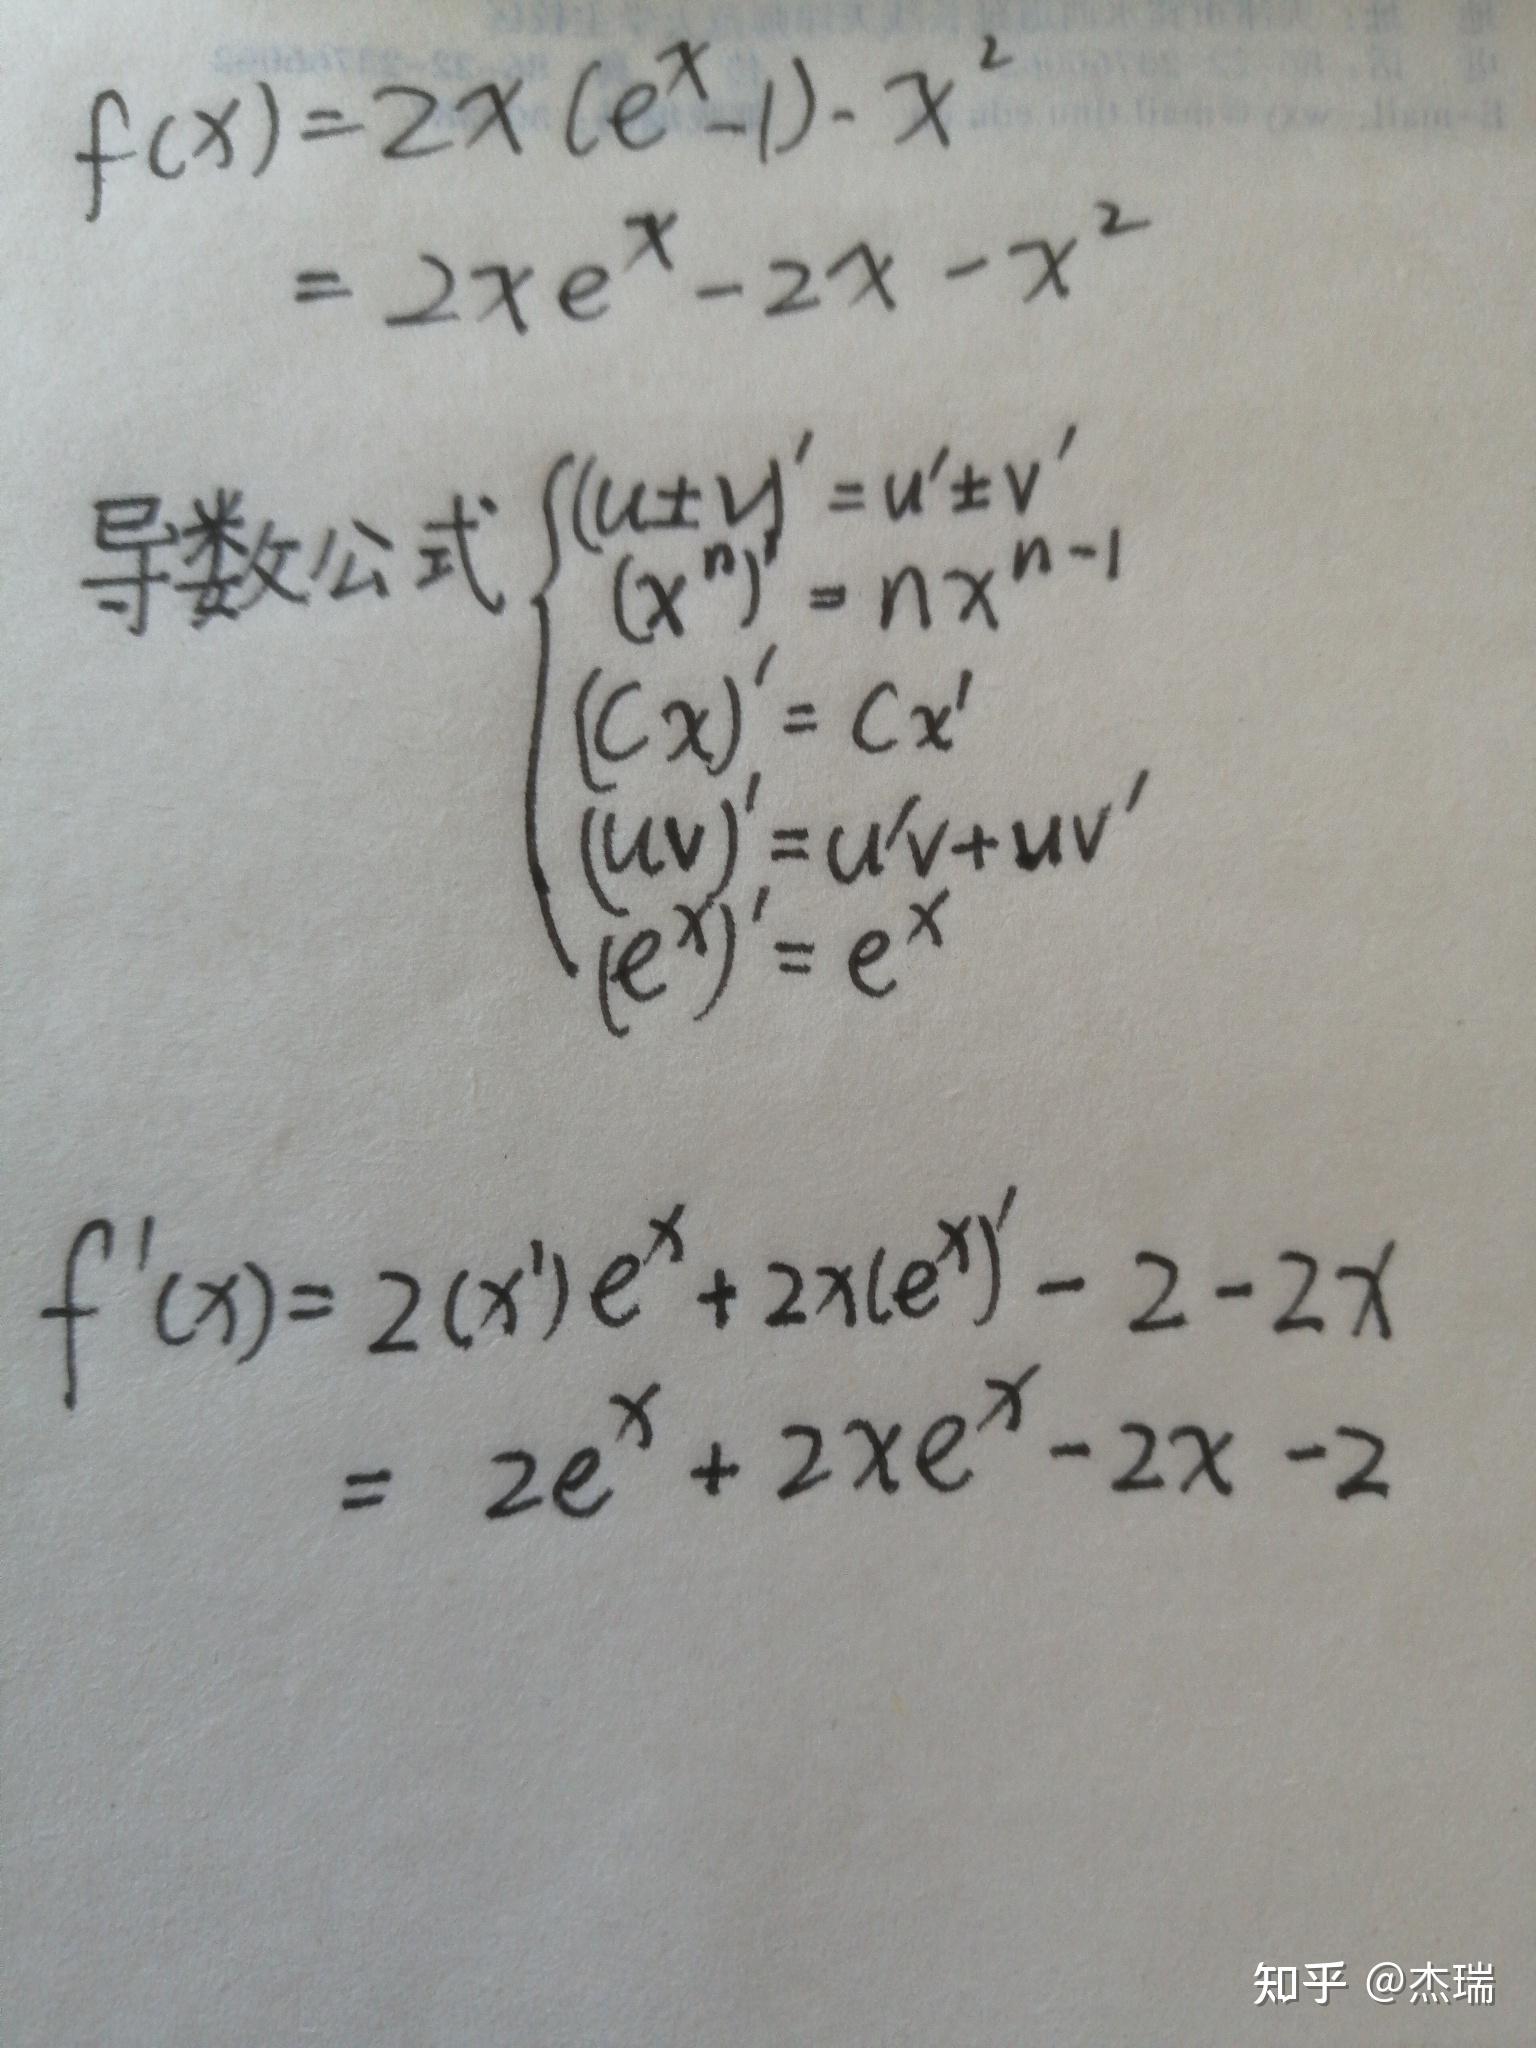 f(x) = 2x(eˣ-1) - x²
= 2xeˣ - 2x - x²
导数公式
(u±v)' = u'±v'
(xⁿ)' = nxⁿ⁻¹
(Cx)' = Cx'
(uv)' = u'v+uv'
(eˣ)' = eˣ
f'(x) = 2(x')eˣ + 2x(eˣ)' - 2 - 2x
= 2eˣ + 2xeˣ - 2x - 2
知乎 @杰瑞